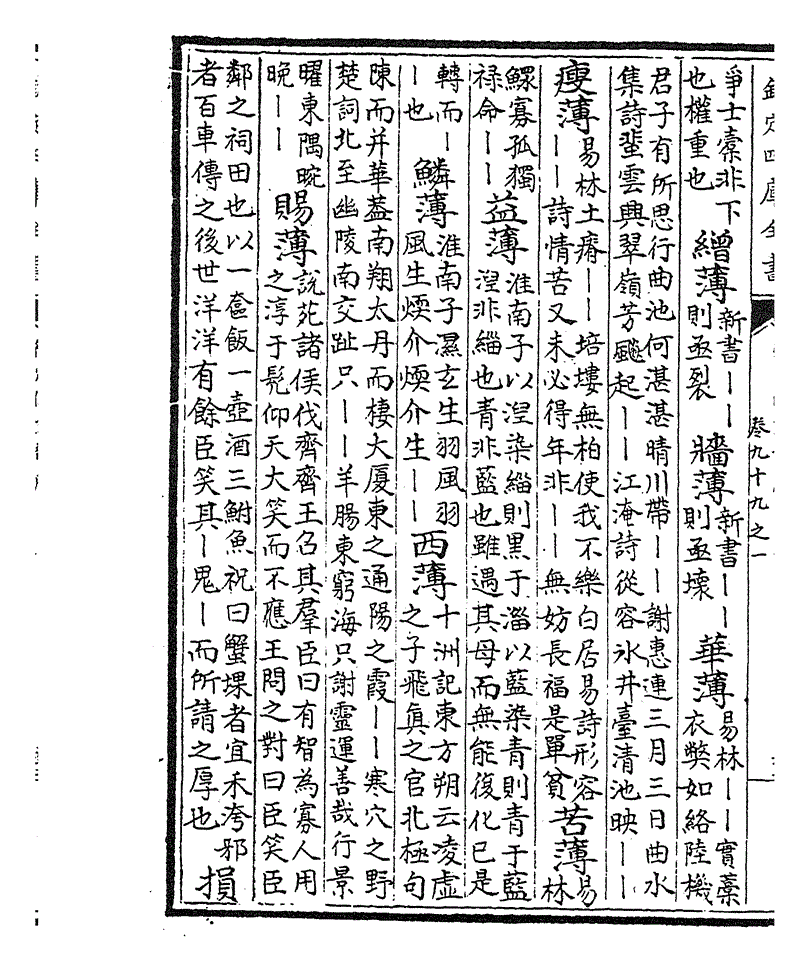 欽定四庫全書
卷九十九之一
爭士橐非下
也權重也
繒薄
新書——
則亟裂
牆薄
新書——
則亟壞
華薄
易林——實藁
衣獘如絡陸機
君子有所思行曲池何湛湛晴川帶——謝惠連三月三日曲水
集詩蜚雲興翠嶺芳飈起——江淹詩從容氷井臺清池映——
瘦薄
易林土瘠——培塿無柏使我不樂白居易詩形容
——詩情苦又未必得年非——無妨長福是單貧
苦薄
易
林
鰥寡孤獨
禄命——
益薄
淮南子以湼染緇則黑于淄以藍染青則青于藍
湼非緇也青非藍也雖遇其母而無能復化已是
轉而—
—也
鱗薄
淮南子濕玄生羽風羽
風生煗介煗介生——
西薄
十洲記東方朔云凌虚
之子飛真之官北極句
陳而并華葢南翔太丹而棲大厦東之通陽之霞——寒穴之野
楚詞北至幽陵南交趾只——羊腸東窮海只謝靈運善哉行景
曜東隅晼
晚——
賜薄
說苑諸侯伐齊齊王召其羣臣曰有智為寡人用
之淳于髠仰天大笑而不應王問之對曰臣笑臣
鄰之祠田也以一奩飯一壺酒三鮒魚祝曰蟹堁者宜禾洿邪
者百車傳之後世洋洋有餘臣笑其—鬼—而所請之厚也
損